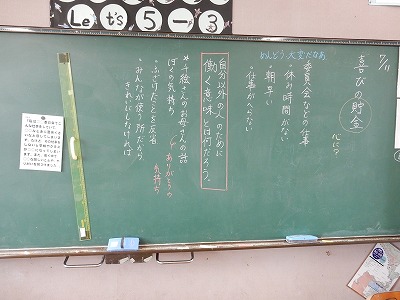 Let's 5-3
7/11
喜びの貯金
心に？
めんどう 大変だなあ
委員会などの仕事
・休み時間がない
・朝早い
・仕事がへらない
自分以外の人のために
働く意味とは何だろう。
＊千絵さんのお母さんの話
ありがとうの
気持ち
ぼくの気持ち
・ふざけたことを反省
・みんなが使う所だから
きれいにしなければ